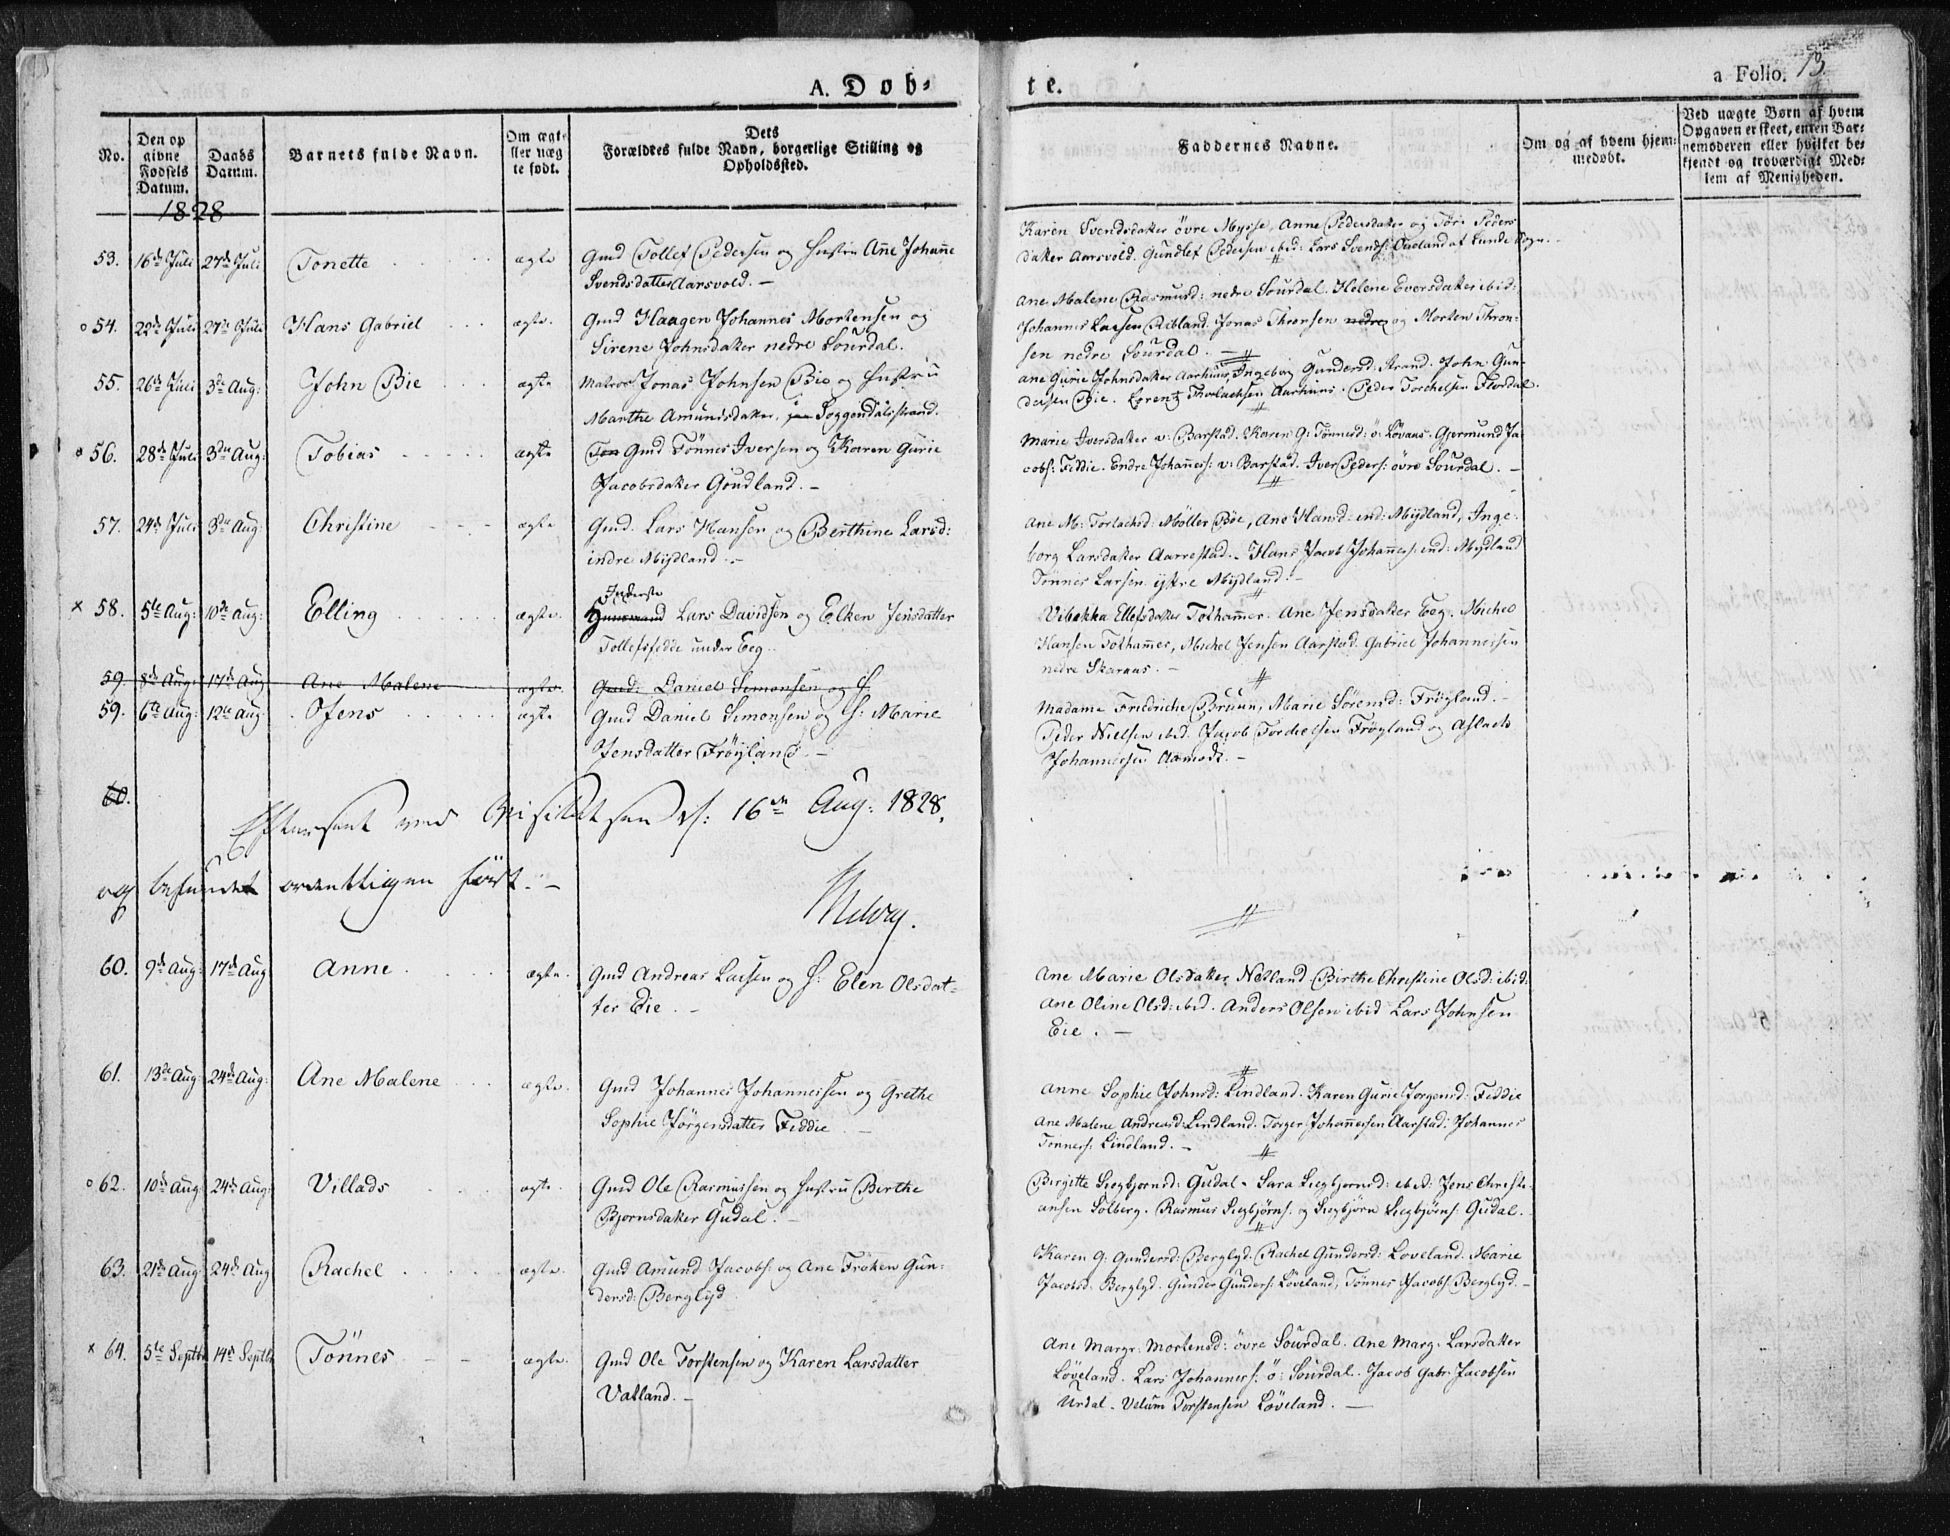 A. Döb=
te.
a Folio. 13.
No.
Den op
givne
Fødsels
Datum.
Daabs
Datum.
Barnets fulde Navn.
Om ægte
eller uæg
te født.
Dets
Forældres fulde Navn, borgerlige Stilling og
Opholdssted.
Faddernes Navne.
Om og af hvem hjem=
medøbt.
Ved uægte Børn af hvem
Opgaven er skeet, enten Bar=
nemoderen eller hvilket be=
kjendt og troværdigt Med=
lem af Menigheden.
1828
53. 16de Juli 27de Juli Tonette ægte Gmd Tollef Pedersen og Hustru Ane Johanne
Svendsdatter Aarsvold. -
Karen Svendsdatter övre Mysse, Anne Pedersdatter og Töre Peders
datter Aarsvold. Gundlef Pedersen ibid: Lars Svends: Oueland af Lunde Sogn.
54. 22de Juli 27de Juli Hans Gabriel ægte. Gmd Haagen Johannes Mortensen og
Sirene Johnsdatter nedre Sourdal.
Ane Malene Rasmusd: nedre Sourdal. Helene Eversdatter ibid:
Johannes Larsen Ribland. Jonas Thronsen nedre og Morten Thron-
sen nedre Sourdal. -
55. 26de Juli 3de Aug: John Bie ægte Matros Jonas Johnsen Bie og Hustru
Marthe Amundsdatter, Soggendalsstrand.
Ane Gurie Johnsdatter Aarhuus, Ingeborg Gundersd: Strand. John Gun-
dersen Bie. Lorentz Thorlachsen Aarhuus. Peder Torchelsen Flordal.
56. 28de Juli 3die Aug: Tobias ægte Ton Gmd Tönnes Iversen og Karen Gurie
Jacobsdatter Goudland. -
Marie Iversdatter v: Barstad. Karen G: Tönnesd: ö: Lövaas. Gjermund Ja-
cobs: Feddie. Endre Johannes: v: Barstad. Iver Peders: övre Sourdal. -
57. 24de Juli 3die Aug: Christine ægte Gmd. Lars Hansen og Berthine Larsd:
indre Mydland. -
Ane M: Torlachsd: Möller Böe, Ane Hansd: ind: Mydland, Inge-
borg Larsdatter Aarrestad. - Hans Jacob Johannes: ind: Mydland
Tönnes Larsen ytre Mydland. -
58. 5te Aug: 10de Aug: Elling ægte. Inderste
Huusmand Lars Davidsen og Elken Jensdatter
Tollefsfedde under Eeg.
Vibekka Ellefsdatter Tothammer. Ane Jensdatter Eeg. Michel
Hansen Tothammer, Michel Jensen Aarstad. Gabriel Johannessen
nedre Skaraas. -
59. 8de Aug: 17de Aug Ane Malene ægte. Gmd: Daniel Simonsen og H.
59. 6te Aug: 12te Aug. Jens ægte Gmd Daniel Simonsen og H: Marie
Jensdatter Fröyland. -
Madame Fredriche Bruun, Marie Sörensd: Fröyland. -
Peder Nielsen ibid. Jacob Torchelsen Fröyland og Aslach
Johannessen Aamodt. -
60.
Efterseet ved Visitatsen d: 16de Aug: 1828,
og befundet ordentligen fört. -
60. 9de Aug: 17de Aug Anne ægte. Gmd Andreas Larsen og H: Elen Olsdat-
ter Eie. -
Ane Marie Olsdatter Netland Birthe Christine Olsd: ibid:
Ane Oline Olsd: ibid. Anders Olsen ibid Lars Johnsen
Eie. -
61. 13de Aug: 24de Aug: Ane Malene ægte. Gmd Johannes Johannessen og Grethe
Sophie Jörgensdatter Feddie -
Anne Sophie Johnsd: Lindland. Karen Gurie Jorgensd: Feddie
Ane Malene Andreasd: Lindland. Torger Johannessen Aarstad: Johannes
Tönness: Lindland. -
62. 10de Aug: 24de Aug: Villads ægte. Gmd Ole Rasmussen og Hustru Birthe
Bjornsdatter Gudal. -
Birgitte Siegbjornsd: Gudal - Sara Siegbjornsd: ibid: Jens Christi-
ansen Solberg. Rasmus Siegbjörns: og Siegbjörn Siegbjörns: Gudal.
63. 21de Aug: 24de Aug Rachel ægte. Gmd Amund Jacobs: og Ane Fröken Gun-
dersd: Berglyd
Karen G. Gundersd: Berglyd. Rachel Gundersd: Loveland. Marie
Jacobsd. Berglyd. Gunder Gunders: Löveland, Tönnes Jacobs: Berglyd. -
64. 5te Septbr 14de Septbr Tönnes ægte. Gmd Ole Torstensen og Karen Larsdatter
Vatland. -
Ane Margr: Mortensd: övre Sourdal. Ane Marg: Larsdatter
Löveland. Lars Johannes: ö: Sourdal. Jacob Gabr: Jacobsen
Urdal. Velum Torstensen Löveland. -